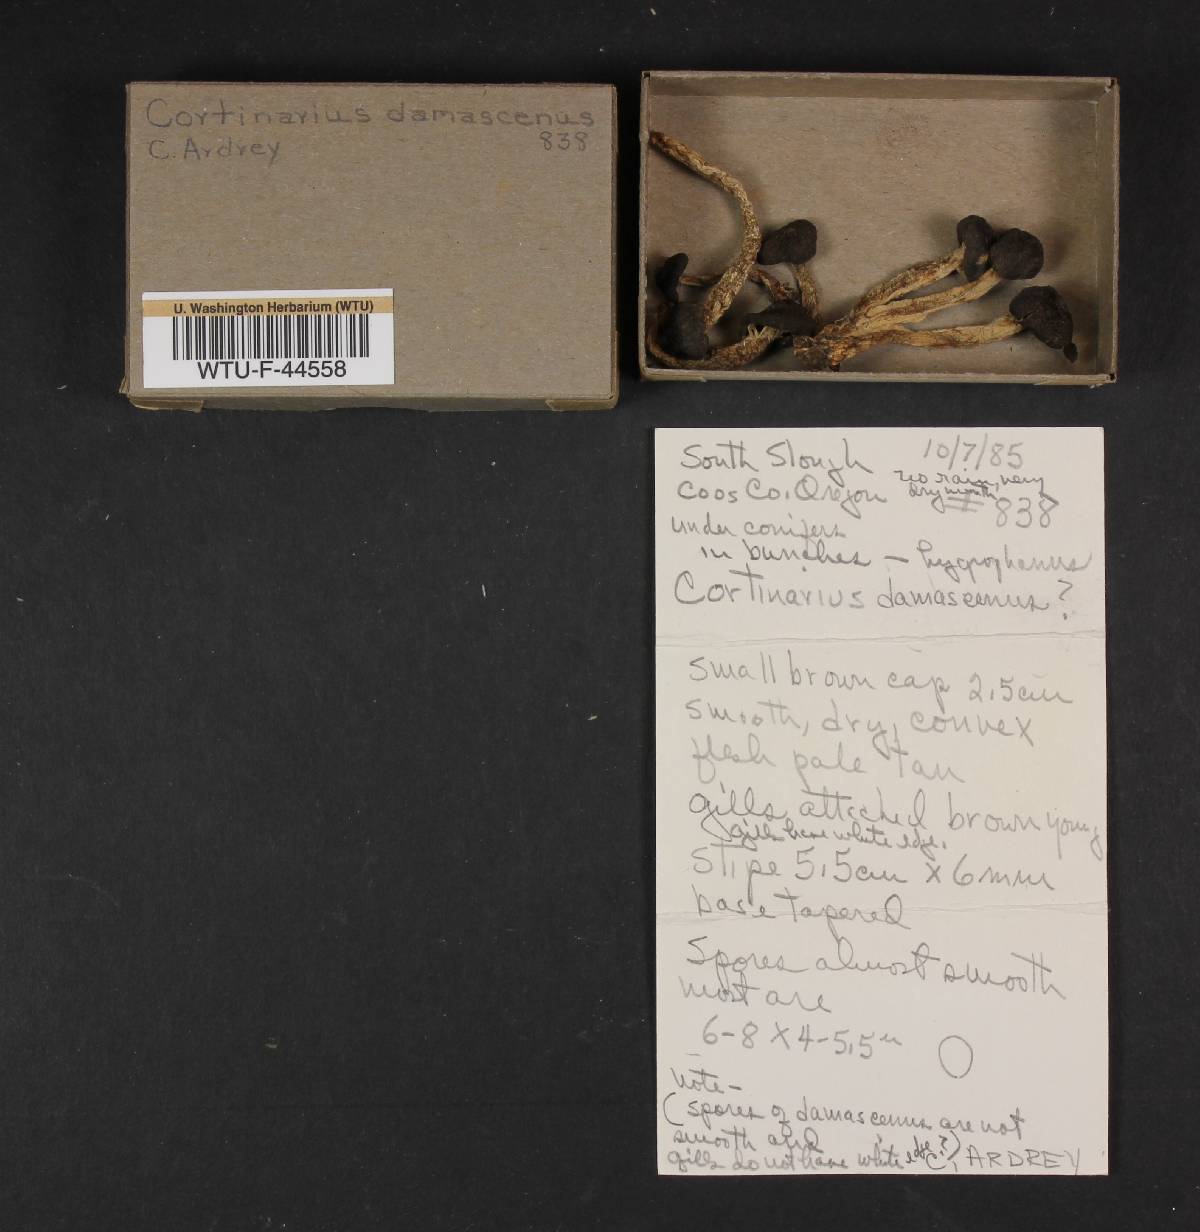 Cortinarius damascenus
C. Ardrey 838
U. Washington Herbarium (WTU)
WTU-F-44558
South Slough 10/7/85
Coos Co. Oregon no rain, very
dry month
# 838
under conifers
in bunches – hygrophanus
Cortinarius damascenus?
small brown cap 2.5cm
smooth, dry, convex
flesh pale tan
gills attached brown young
gills have white edge.
Stipe 5.5cm x 6mm
base tapered
Spores almost smooth
most are
6-8 X 4-5.5u
note-
(spores of damascenus are not
smooth and
gills do not have white edge?)
C. ARDREY